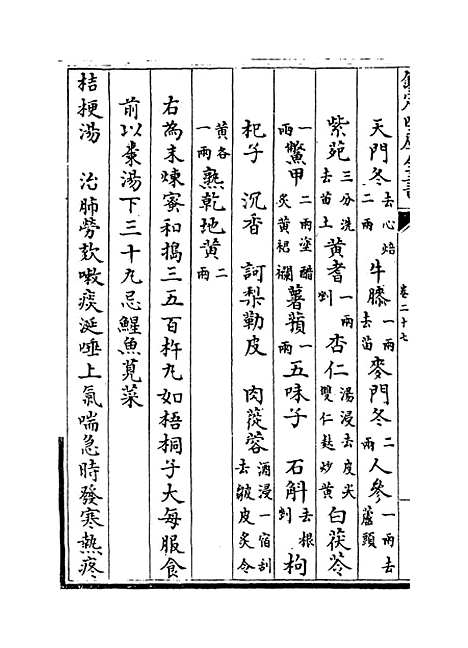 欽定四庫全書
卷二十七
天門冬去心焙二兩牛膝一兩去苗麥門冬二兩人參一兩去蘆頭
紫菀三分洗去苗土黄耆一兩剉杏仁湯浸去皮尖雙仁麩炒黄白茯苓
一兩鱉甲二兩塗醋炙黄裙襴薯蕷一兩五味子 石斛去根剉枸
杞子 沉香 訶梨勒皮 肉蓯蓉酒浸一宿刮去皺皮炙令
黄各一兩熟乾地黄二兩
右為末煉蜜和搗三五百杵丸如梧桐子大每服食
前以棗湯下三十丸忌鯉魚莧菜
桔梗湯 治肺勞欬嗽痰涎唾上氣喘急時發寒熱疼